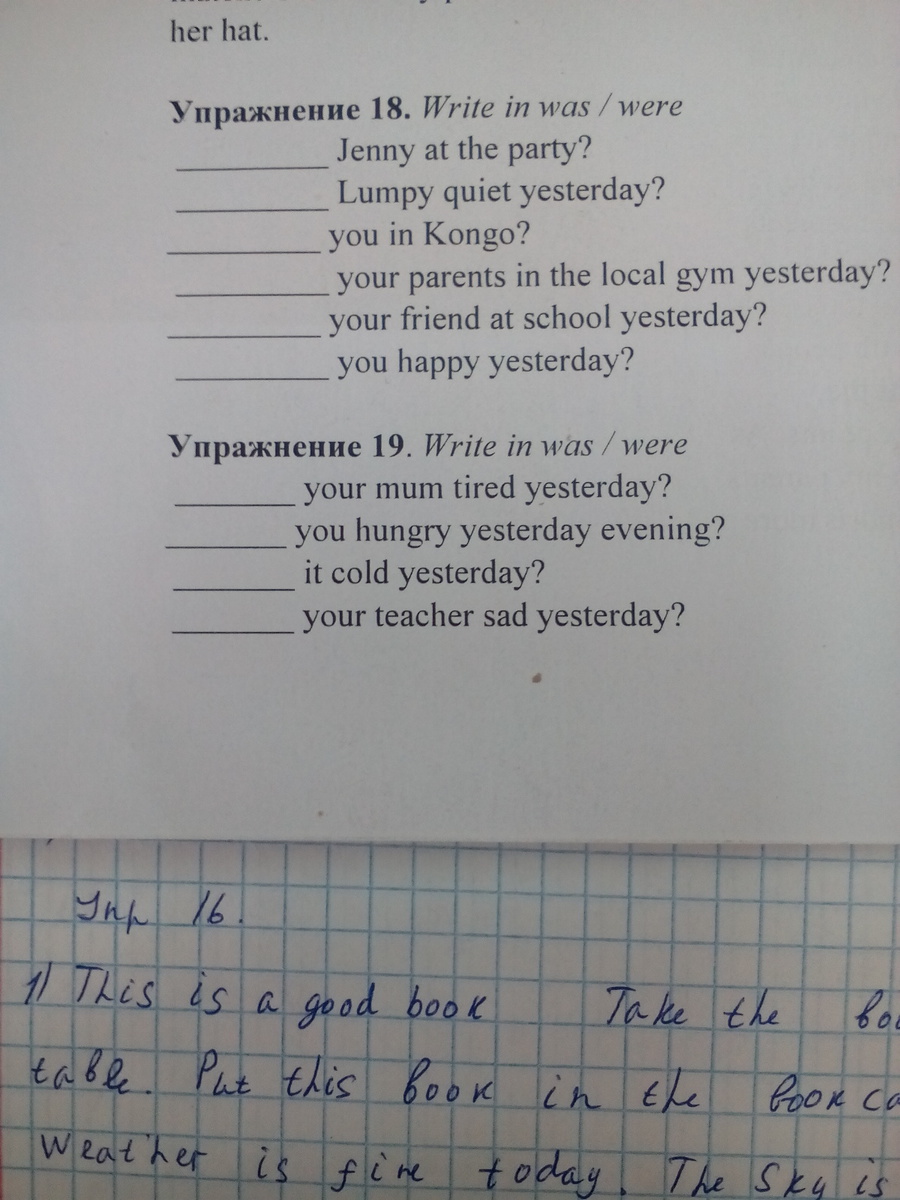 her hat.
Упражнение 18. Write in was / were
_________ Jenny at the party?
_________ Lumpy quiet yesterday?
_________ you in Kongo?
_________ your parents in the local gym yesterday?
_________ your friend at school yesterday?
_________ you happy yesterday?
Упражнение 19. Write in was / were
_______ your mum tired yesterday?
_______ you hungry yesterday evening?
_______ it cold yesterday?
_______ your teacher sad yesterday?
Упр 16.
1) This is a good book Take the
table. Put this book in the
Weather is fine today. The Sky is